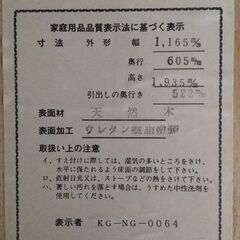 家庭用品品質表示法に基づく表示
寸法 外形 幅 1,165㎜
奥行 605㎜
高さ 1,935㎜
引出しの奥行き 522㎜
表面材 天然木
表面加工 ウレタン樹脂塗装
取扱い上の注意
イ、すえ付けに際しては、湿気の多いところをさけ、
水平に保われるよう床面の調節をして下さい。
ロ、直射日光又は、ストーブなどの熱をさけて下さい。
ハ、著しい汚れを落とす場合は、うすめた中性洗剤を
使用して下さい。
表示者 KG-NG-0064